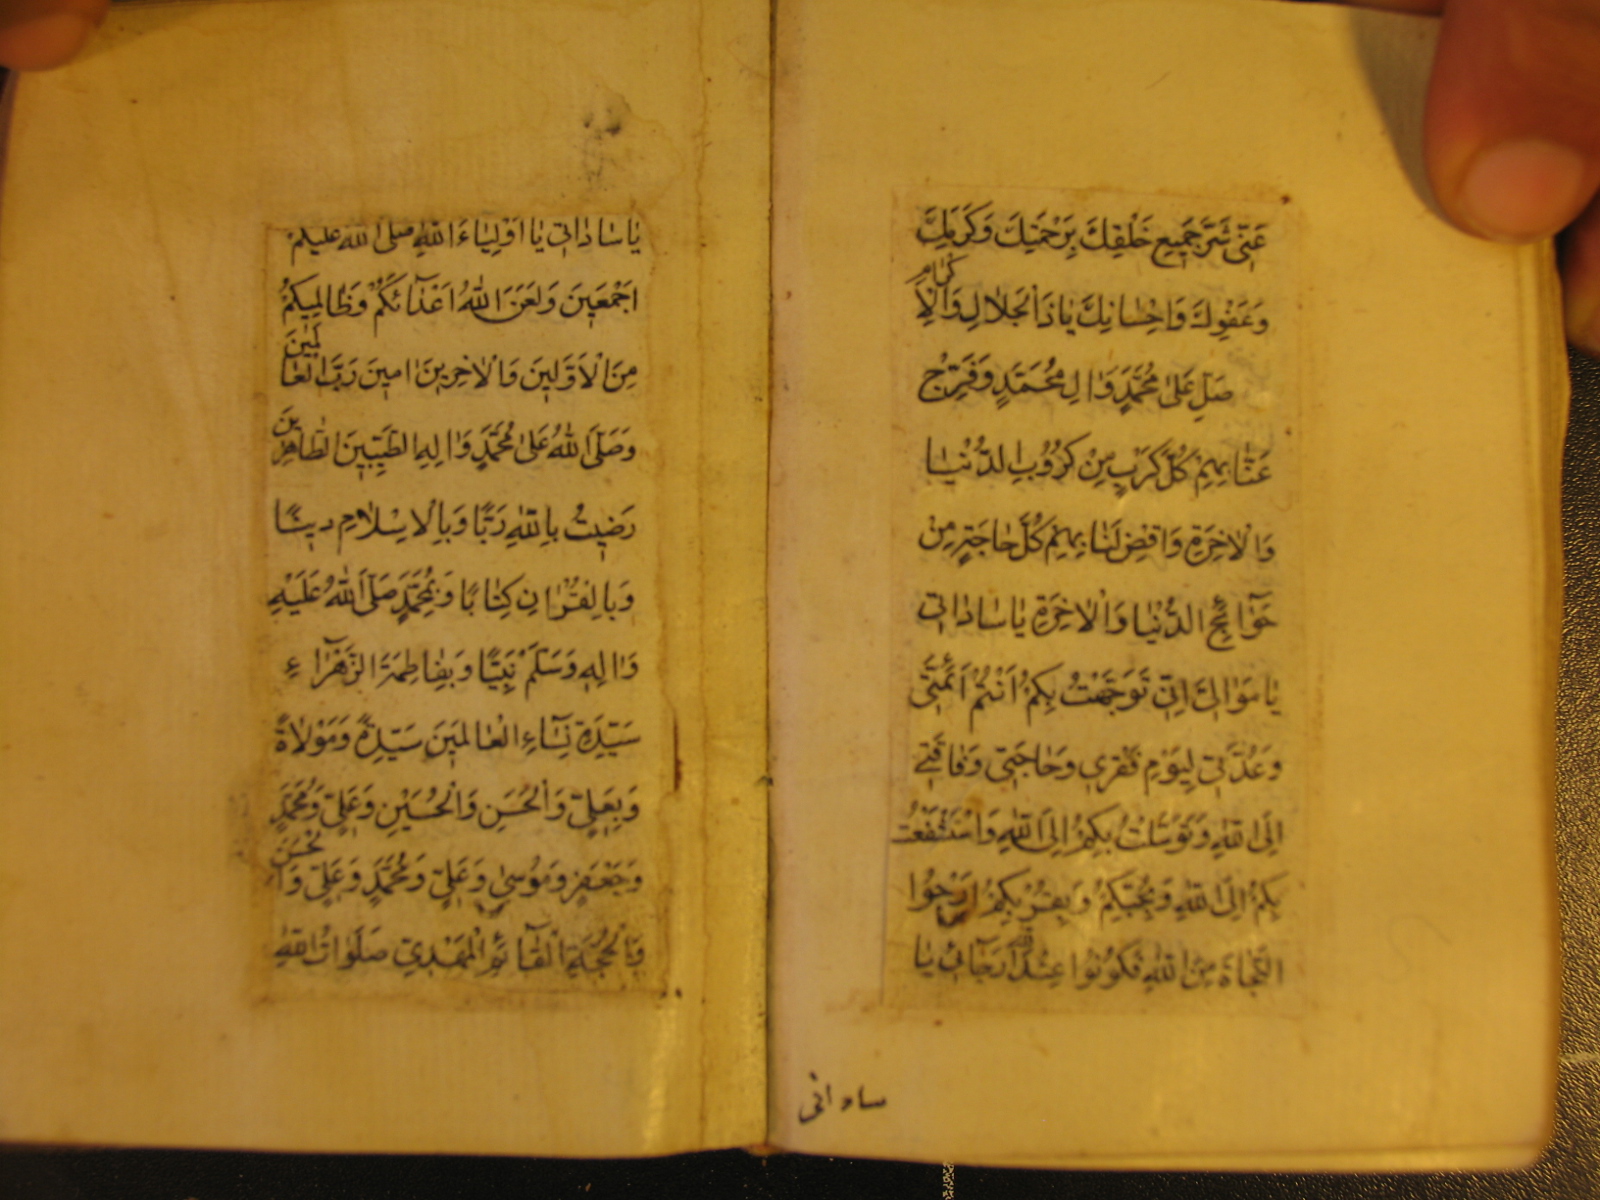 عَنّی شَرَّ جَمیعِ خَلْقِكَ بِرَحْمَتِكَ وَكَرَمِكَ
وَعَفْوِكَ وَاِحْسانِكَ یٰا ذَاالْجَلٰالِ وَالْاِكْرٰامِ
صَلِّ عَلیٰ مُحَمَّدٍ وَاٰلِ مُحَمَّدٍ وَفَرِّجْ
عَنّٰا بِهِمْ كُلَّ كَرْبٍ مِنْ كُرُوبِ الدُّنْیٰا
وَالْاٰخِرَةِ وَاقْضِ لَنٰا بِهِمْ كُلَّ حٰاجَةٍ مِنْ
حَوٰآئِجِ الدُّنْیٰا وَالْاٰخِرَةِ یٰا سٰادٰاتی
یٰا مَوٰالِیَّ اِنّی تَوَجَّهْتُ بِكُمْ اَنْتُمْ اَئِمَّتی
وَعُدَّتی لِیَوْمِ فَقْری وَحٰاجَتی وَفٰاقَتی
اِلَی اللّٰهِ وَتَوَسَّلْتُ بِكُمْ اِلَی اللّٰهِ وَاسْتَشْفَعْتُ
بِكُمْ اِلَی اللّٰهِ وَبِحُبِّكُمْ وَبِقُرْبِكُمْ اَرْجُوا
النَّجٰاةَ مِنَ اللّٰهِ فَكُونُوا عِنْدَ اللّٰهِ رَجٰآئی یٰا
سٰاداتی
یٰا سٰادٰاتی یٰا اَوْلِیٰاءَ اللّٰهِ صَلَّی اللّٰه عَلَیْكُمْ
اَجْمَعینَ وَلَعَنَ اللّٰهُ اَعْدٰآئَكُمْ وَظٰالِمیكُمْ
مِنَ الْاَوَّلینَ وَالْاٰخِرینَ اٰمینَ رَبَّ الْعٰالَمینَ
وَصَلَّی اللّٰهُ عَلیٰ مُحَمَّدٍ وَاٰلِهِ الطَّیِّبینَ الطّٰاهِرینَ
رَضیتُ بِاللّٰهِ رَبًّا وَبِالْاِسْلٰامِ دینًا
وَبِالْقُرْاٰنِ كِتٰابًا وَبِمُحَمَّدٍ صَلَّی اللّٰهُ عَلَیْهِ
وَاٰلِهِ وَسَلَّمَ نَبِیًّا وَبِفٰاطِمَةَ الزَّهْرٰآءِ
سَیِّدَةِ نِسٰآءِ الْعٰالَمینَ سَیِّدَةً وَمَوْلٰاةً
وَبِعَلِیٍّ وَالْحَسَنِ وَالْحُسَیْنِ وَعَلِیٍّ وَمُحَمَّدٍ
وَجَعْفَرٍ وَمُوسیٰ وَعَلِیٍّ وَمُحَمَّدٍ وَعَلِیٍّ وَالْحَسَنِ
وَالْحُجَّةِ الْقٰآئِمِ الْمَهْدِیِّ صَلَوٰاتُ اللّٰهِ